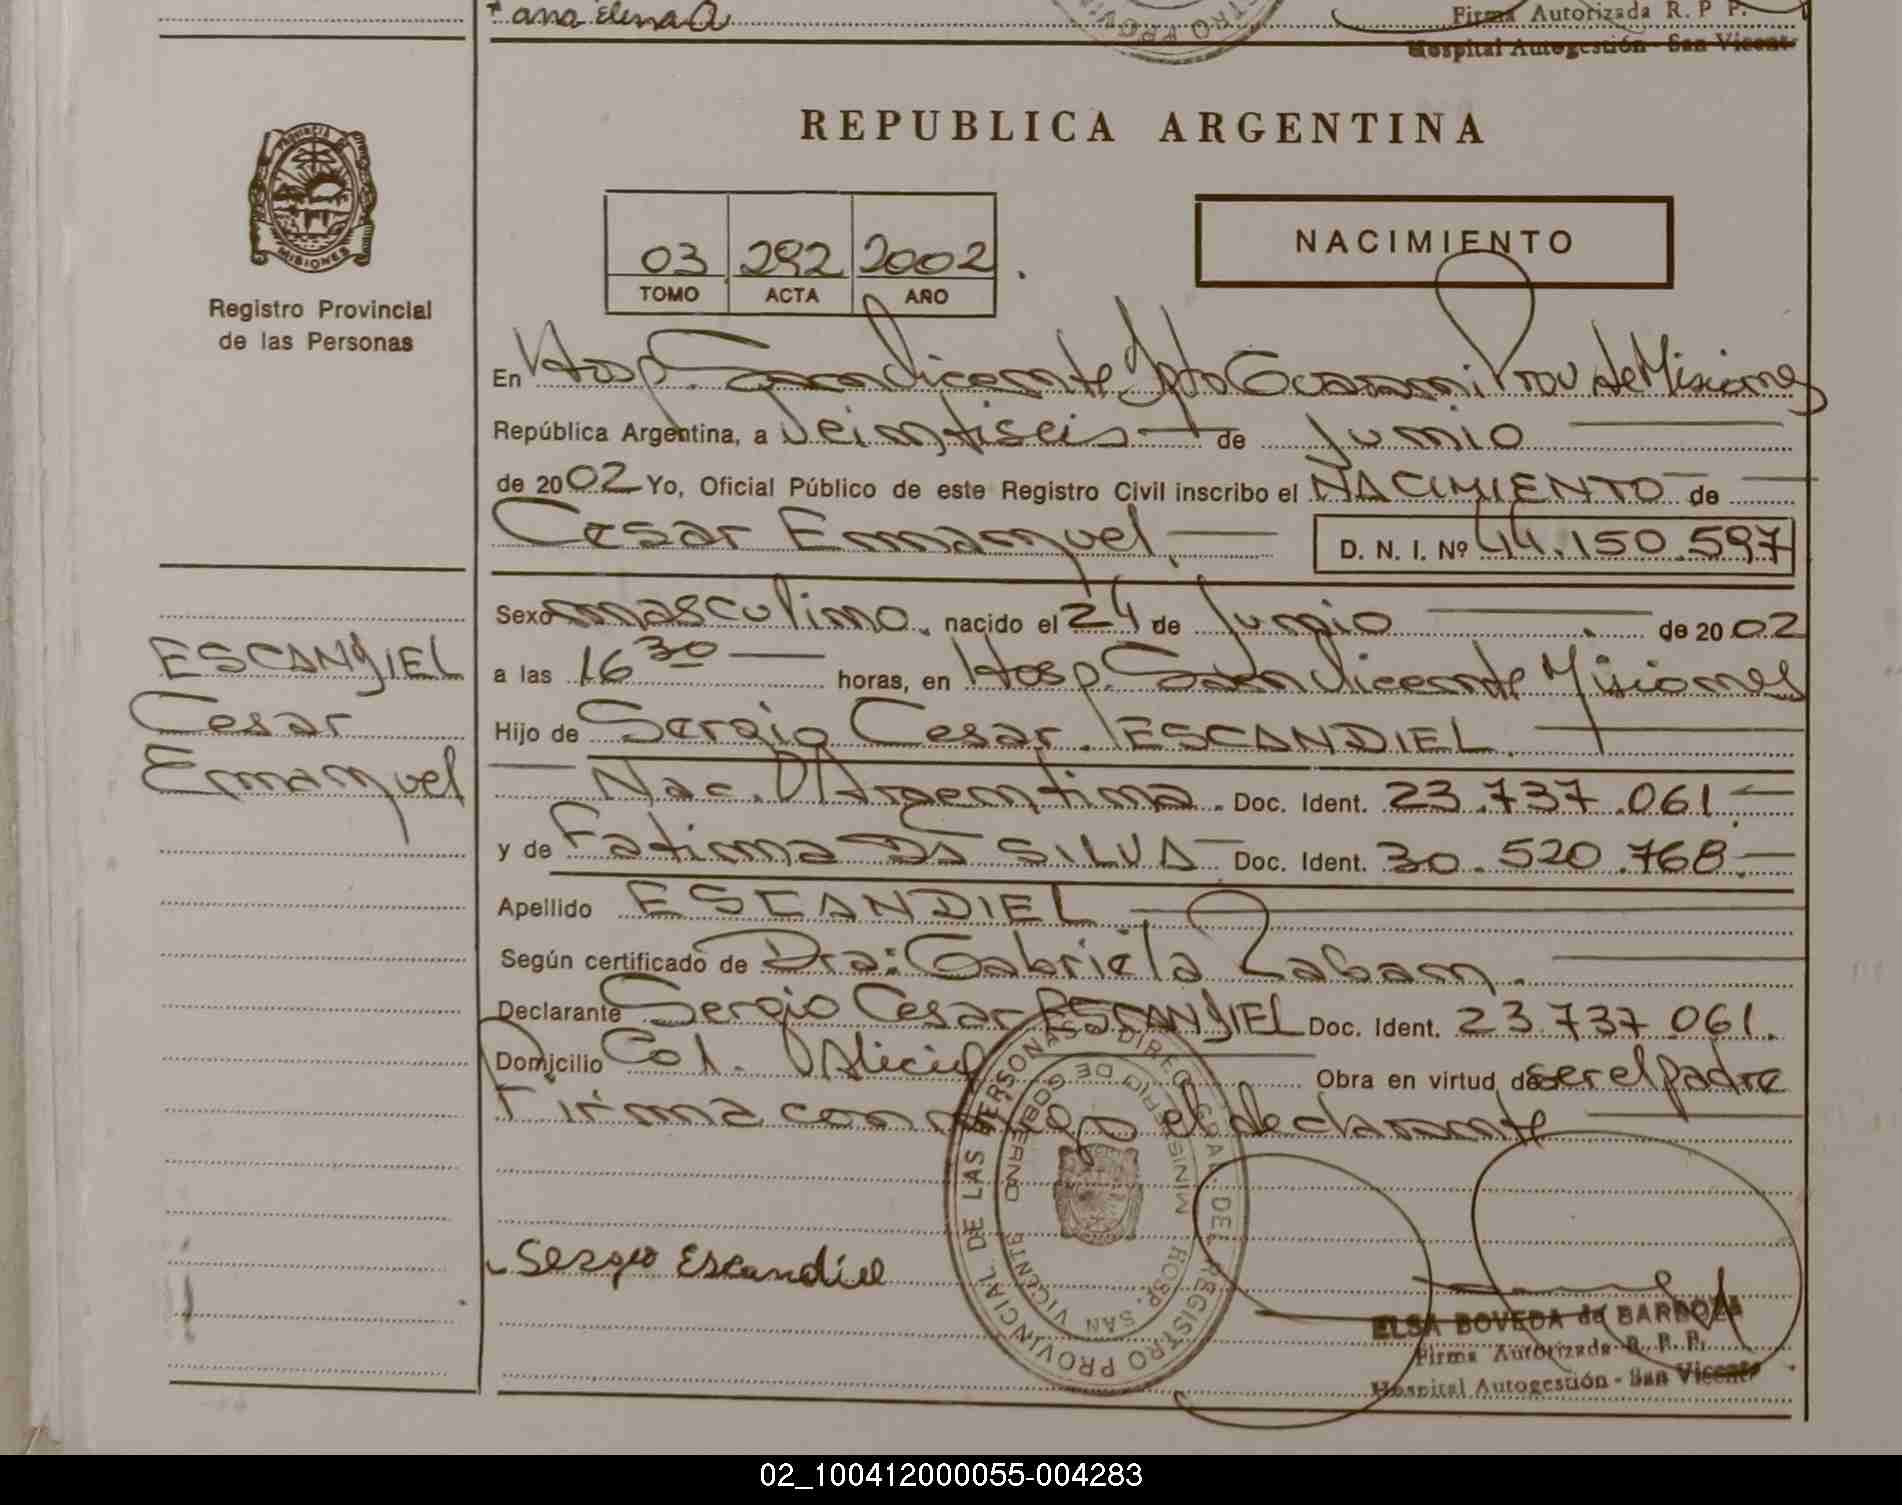 ana Elena
Firma Autorizada R. P. P.
Hospital Autogestión - San Vicente
REPUBLICA ARGENTINA
PROVINCIA DE
MISIONES
Registro Provincial
de las Personas
03 292 2002
TOMO ACTA AÑO
NACIMIENTO
En Hosp. San Vicente Dpto Guarani Prov de Misiones
República Argentina, a Veintiseis de Junio
de 2002 Yo, Oficial Público de este Registro Civil inscribo el NACIMIENTO de
Cesar Emmanuel D. N. I. Nº 44.150.597
Sexo masculino, nacido el 24 de Junio de 2002
a las 16 30 horas, en Hosp. San Vicente Misiones
Hijo de Sergio Cesar ESCANDIEL
Nac. Argentina. Doc. Ident. 23.737.061
y de Fatima DA SILVA Doc. Ident. 30.520.768
Apellido ESCANDIEL
Según certificado de Dra: Gabriela Zaban.
Declarante Sergio Cesar ESCANDIEL Doc. Ident. 23.737.061.
Domicilio Col. Alicia Obra en virtud de ser el padre
Firma conmigo el declarante
ESCANDIEL
Cesar
Emmanuel
Sergio Escandiel
REGISTRO PROVINCIAL DE LAS PERSONAS DIREC. GRAL. DEL
MINISTERIO DE GOBIERNO
HOSP. SAN VICENTE
ELSA BOVEDA de BARBOZA
Firma Autorizada R. P. P.
Hospital Autogestión - San Vicente
02_100412000055-004283